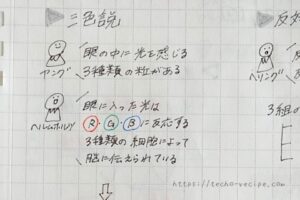 三色説
眼の中に光を感じる
3種類の粒がある
ヤング
眼に入った光は
R・G・Bに反応する
3種類の細胞によって
脳に伝えられている
ヘルムホルツ
反対
ヘリング
3組の
https://techo-recipe.com